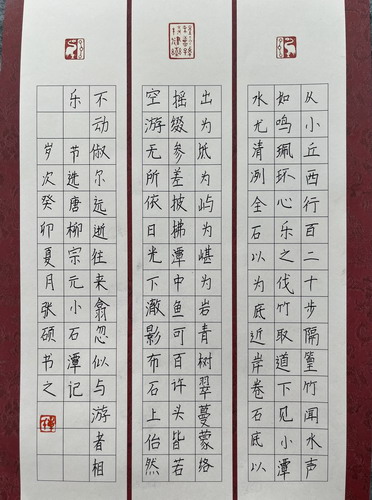 从小丘西行百二十步隔篁竹闻水声
如鸣珮环心乐之伐竹取道下见小潭
水尤清冽全石以为底近岸卷石底以
出为坻为屿为嵁为岩青树翠蔓蒙络
摇缀参差披拂潭中鱼可百许头皆若
空游无所依日光下澈影布石上佁然
不动俶尔远逝往来翕忽似与游者相
乐 节选唐柳宗元小石潭记
岁次癸卯夏月张硕书之